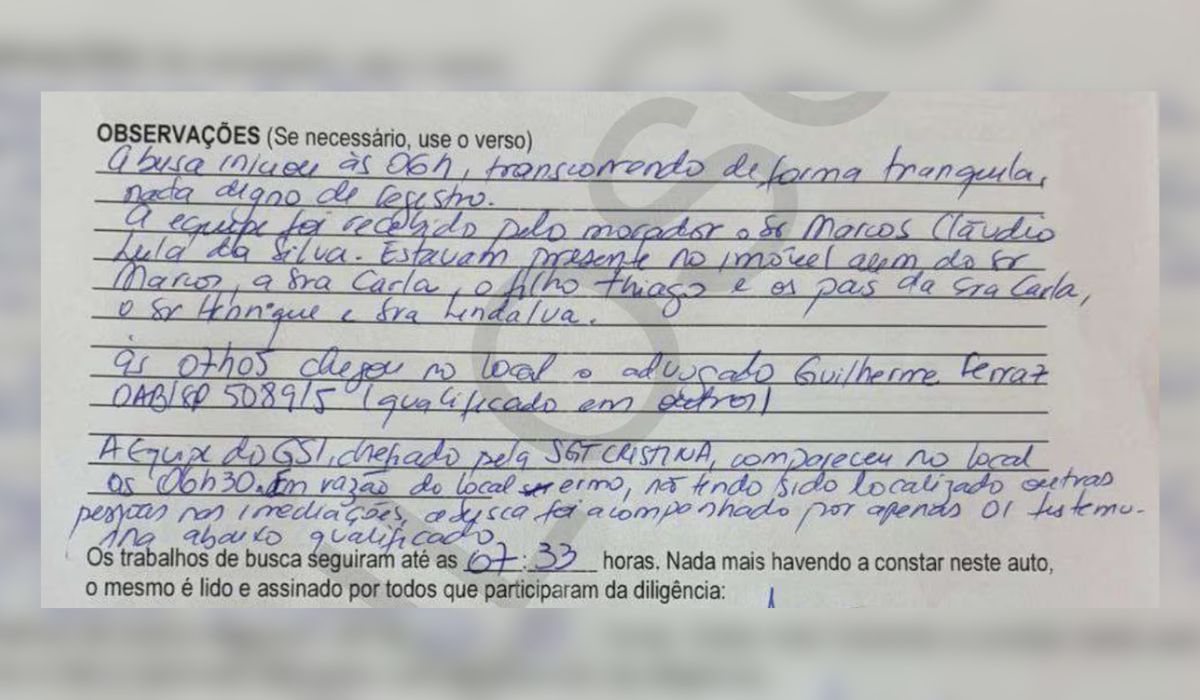 OBSERVAÇÕES (Se necessário, use o verso)
A busca iniciou às 06h, transcorrendo de forma tranquila,
nada digno de registro.
A equipe foi recebido pelo morador o Sr Marcos Cláudio
Lula da Silva. Estavam presente no imóvel alem do Sr
Marcos, a Sra Carla, o filho Thiago e os pais da Sra Carla,
o Sr Henrique e Sra Lindalva.
às 07h05 chegou no local o advogado Guilherme Ferraz
OAB/SP 508915 (qualificado em outros)
A Equipe do GSI, chefiado pela SGT CRISTINA, compareceu no local
às 06h30. Em razão do local ermo, não tendo sido localizado outras
pessoas nas imediações, a busca foi acompanhado por apenas 01 testemu-
nha abaixo qualificado.
Os trabalhos de busca seguiram até as 07:33 horas. Nada mais havendo a constar neste auto,
o mesmo é lido e assinado por todos que participaram da diligência: